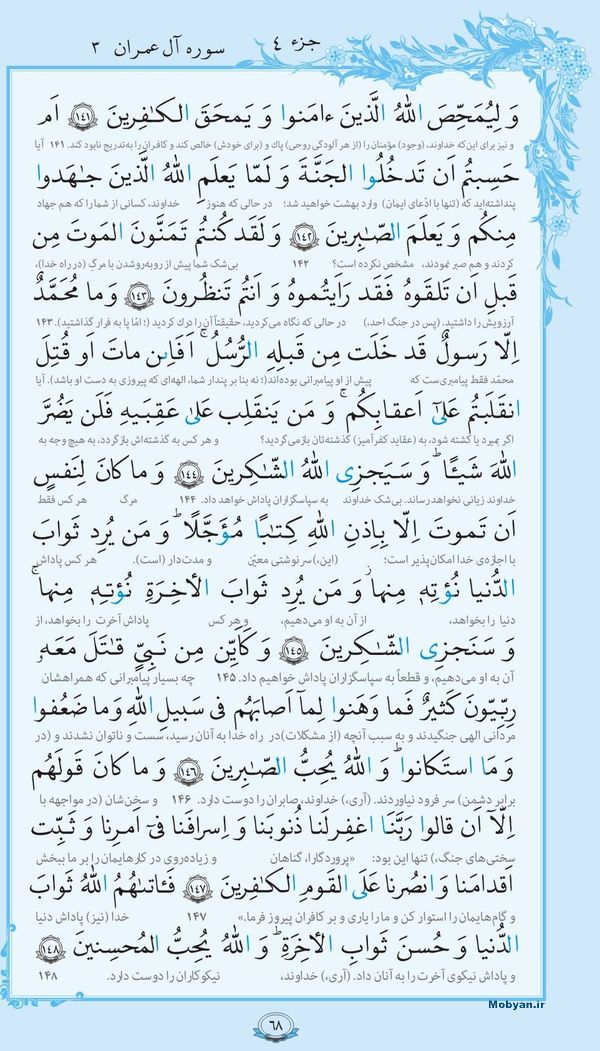 جزء ٤
سوره آل عمران ٣
وَ لِيُمَحِّصَ اللهُ الَّذينَ ءامَنوا وَ يَمحَقَ الكـٰفِرينَ ﴿١٤١﴾ اَم
و نیز برای این‌که خداوند، (وجود) مؤمنان را (از هر آلودگی روحی) پاك و (برای خودش) خالص کند و کافران را به‌تدریج نابود کند. ۱۴۱ آیا
حَسِبتُم اَن تَدخُلُوا الجَنَّةَ وَ لَمّا يَعلَمِ اللهُ الَّذينَ جـٰهَدوا
پنداشته‌اید که (تنها با ادّعای ایمان) وارد بهشت خواهید شد؛ در حالی که هنوز خداوند، کسانی از شما را که هم جهاد
مِنكُم وَ يَعلَمَ الصّـٰبِرينَ ﴿١٤٢﴾ وَ لَقَد كُنتُم تَمَنَّونَ المَوتَ مِن
کردند و هم صبر نمودند، مشخص نکرده است؟ ۱۴۲ بی‌شک شما پیش از روبه‌روشدن با مرگ (در راه خدا)،
قَبلِ اَن تَلقَوهُ فَقَد رَاَيتُموهُ وَ اَنتُم تَنظُرونَ ﴿١٤٣﴾ وَ ما مُحَمَّدٌ
آرزویش را داشتید. (پس در جنگ احد،) در حالی که نگاه می‌کردید، حقیقتاً آن را درك کردید (؛ امّا پا به فرار گذاشتید). ۱۴۳
اِلّا رَسولٌ قَد خَلَت مِن قَبلِهِ الرُّسُلُ ۚ اَفَاي۟ن ماتَ اَو قُتِلَ
محمّد فقط پیامبری‌ست که پیش از او پیامبرانی بوده‌اند(؛ نه بنا بر پندار شما، الهه‌ای که پیروزی به دست او باشد). آیا
انقَلَبتُم عَلىٰٓ اَعقابِكُم ۚ وَ مَن يَنقَلِب عَلىٰ عَقِبَيهِ فَلَن يَضُرَّ
اگر بمیرد یا کشته شود، به (عقاید کفرآمیز) گذشته‌تان بازمی‌گردید؟ و هر کس به گذشته‌اش بازگردد، به هیچ وجه به
اللهَ شَيـًٔا ۗ وَ سَيَجزِى اللهُ الشّـٰكِرينَ ﴿١٤٤﴾ وَ ما كانَ لِنَفسٍ
خداوند زیانی نخواهد رساند. بی‌شک خداوند به سپاسگزاران پاداش خواهد داد. ۱۴۴ مرگ هر کس فقط
اَن تَموتَ اِلّا بِاِذنِ اللهِ كِتـٰبًا مُؤَجَّلًا ۗ وَ مَن يُرِد ثَوابَ
با اجازه‌ی خدا امکان‌پذیر است؛ (این،) سرنوشتی معیّن و مدت‌دار (است). هر کس پاداش
الدُّنيا نُؤتِهٖ مِنها ۚ وَ مَن يُرِد ثَوابَ الأٰخِرَةِ نُؤتِهٖ مِنها ۚ
دنیا را بخواهد، از آن به او می‌دهیم، و هر کس پاداش آخرت را بخواهد، از
وَ سَنَجزِى الشّـٰكِرينَ ﴿١٤٥﴾ وَ كَاَيِّن مِن نَبِىٍّ قـٰتَلَ مَعَهٗ
آن به او می‌دهیم، و قطعاً به سپاسگزاران پاداش خواهیم داد. ۱۴۵ چه بسیار پیامبرانی که همراهشان
رِبِّيّونَ كَثيرٌ فَما وَهَنوا لِمآ اَصابَهُم فى سَبيلِ اللهِ وَ ما ضَعُفوا
مردانی الهی جنگیدند و به سبب آنچه (از مشکلات) در راه خدا به آنان رسید، سست و ناتوان نشدند و (در
وَ مَا استَكانوا ۗ وَ اللهُ يُحِبُّ الصّـٰبِرينَ ﴿١٤٦﴾ وَ ما كانَ قَولَهُم
برابر دشمن) سر فرود نیاوردند. (آری،) خداوند، صابران را دوست دارد. ۱۴۶ و سخن‌شان (در مواجهه با
اِلّآ اَن قالوا رَبَّنَا اغفِرلَنا ذُنوبَنا وَ اِسرافَنا فىٓ اَمرِنا وَ ثَبِّت
سختی‌های جنگ،) تنها این بود: «پروردگارا، گناهان و زیاده‌روی در کارهایمان را بر ما ببخش
اَقدامَنا وَ انصُرنا عَلَى القَومِ الكـٰفِرينَ ﴿١٤٧﴾ فَـٔاتىٰهُمُ اللهُ ثَوابَ
و گام‌هایمان را استوار کن و ما را یاری و بر کافران پیروز فرما.» ۱۴۷ خدا (نیز) پاداش دنیا
الدُّنيا وَ حُسنَ ثَوابِ الأٰخِرَةِ ۗ وَ اللهُ يُحِبُّ المُحسِنينَ ﴿١٤٨﴾
و پاداش نیکوی آخرت را به آنان داد. (آری،) خداوند، نیکوکاران را دوست دارد. ۱۴۸
Mobyan.ir
٦٨